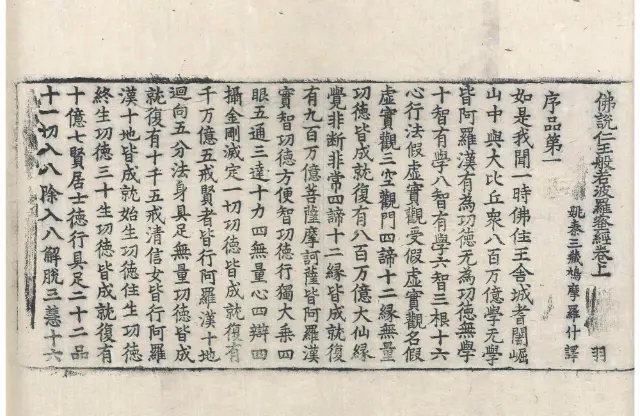 佛說仁王般若波羅蜜經卷上
羽
姚秦三藏鳩摩羅什譯
序品第一
如是我聞一時佛住王舍城耆闍崛
山中與大比丘衆八百万億學无學
皆阿羅漢有為功德无為功德無學
十智有學八智有學六智三根十六
心行法假虛實觀受假虛實觀名假
虛實觀三空觀門四諦十二緣無量
功德皆成就復有八百万億大仙緣
覺非斷非常四諦十二緣皆成就復
有九百万億菩薩摩訶薩皆阿羅漢
實智功德方便智功德行獨大乘四
眼五通三達十力四無量心四辯四
攝金剛滅定一切功德皆成就復有
千万億五戒賢者皆行阿羅漢十地
迴向五分法身具足無量功德皆成
就復有十千五戒清信女皆行阿羅
漢十地皆成就始生功德住生功德
終生功德三十生功德皆成就復有
十億七賢居士德行具足二十二品
十一切入八除入八解脫三慧十六